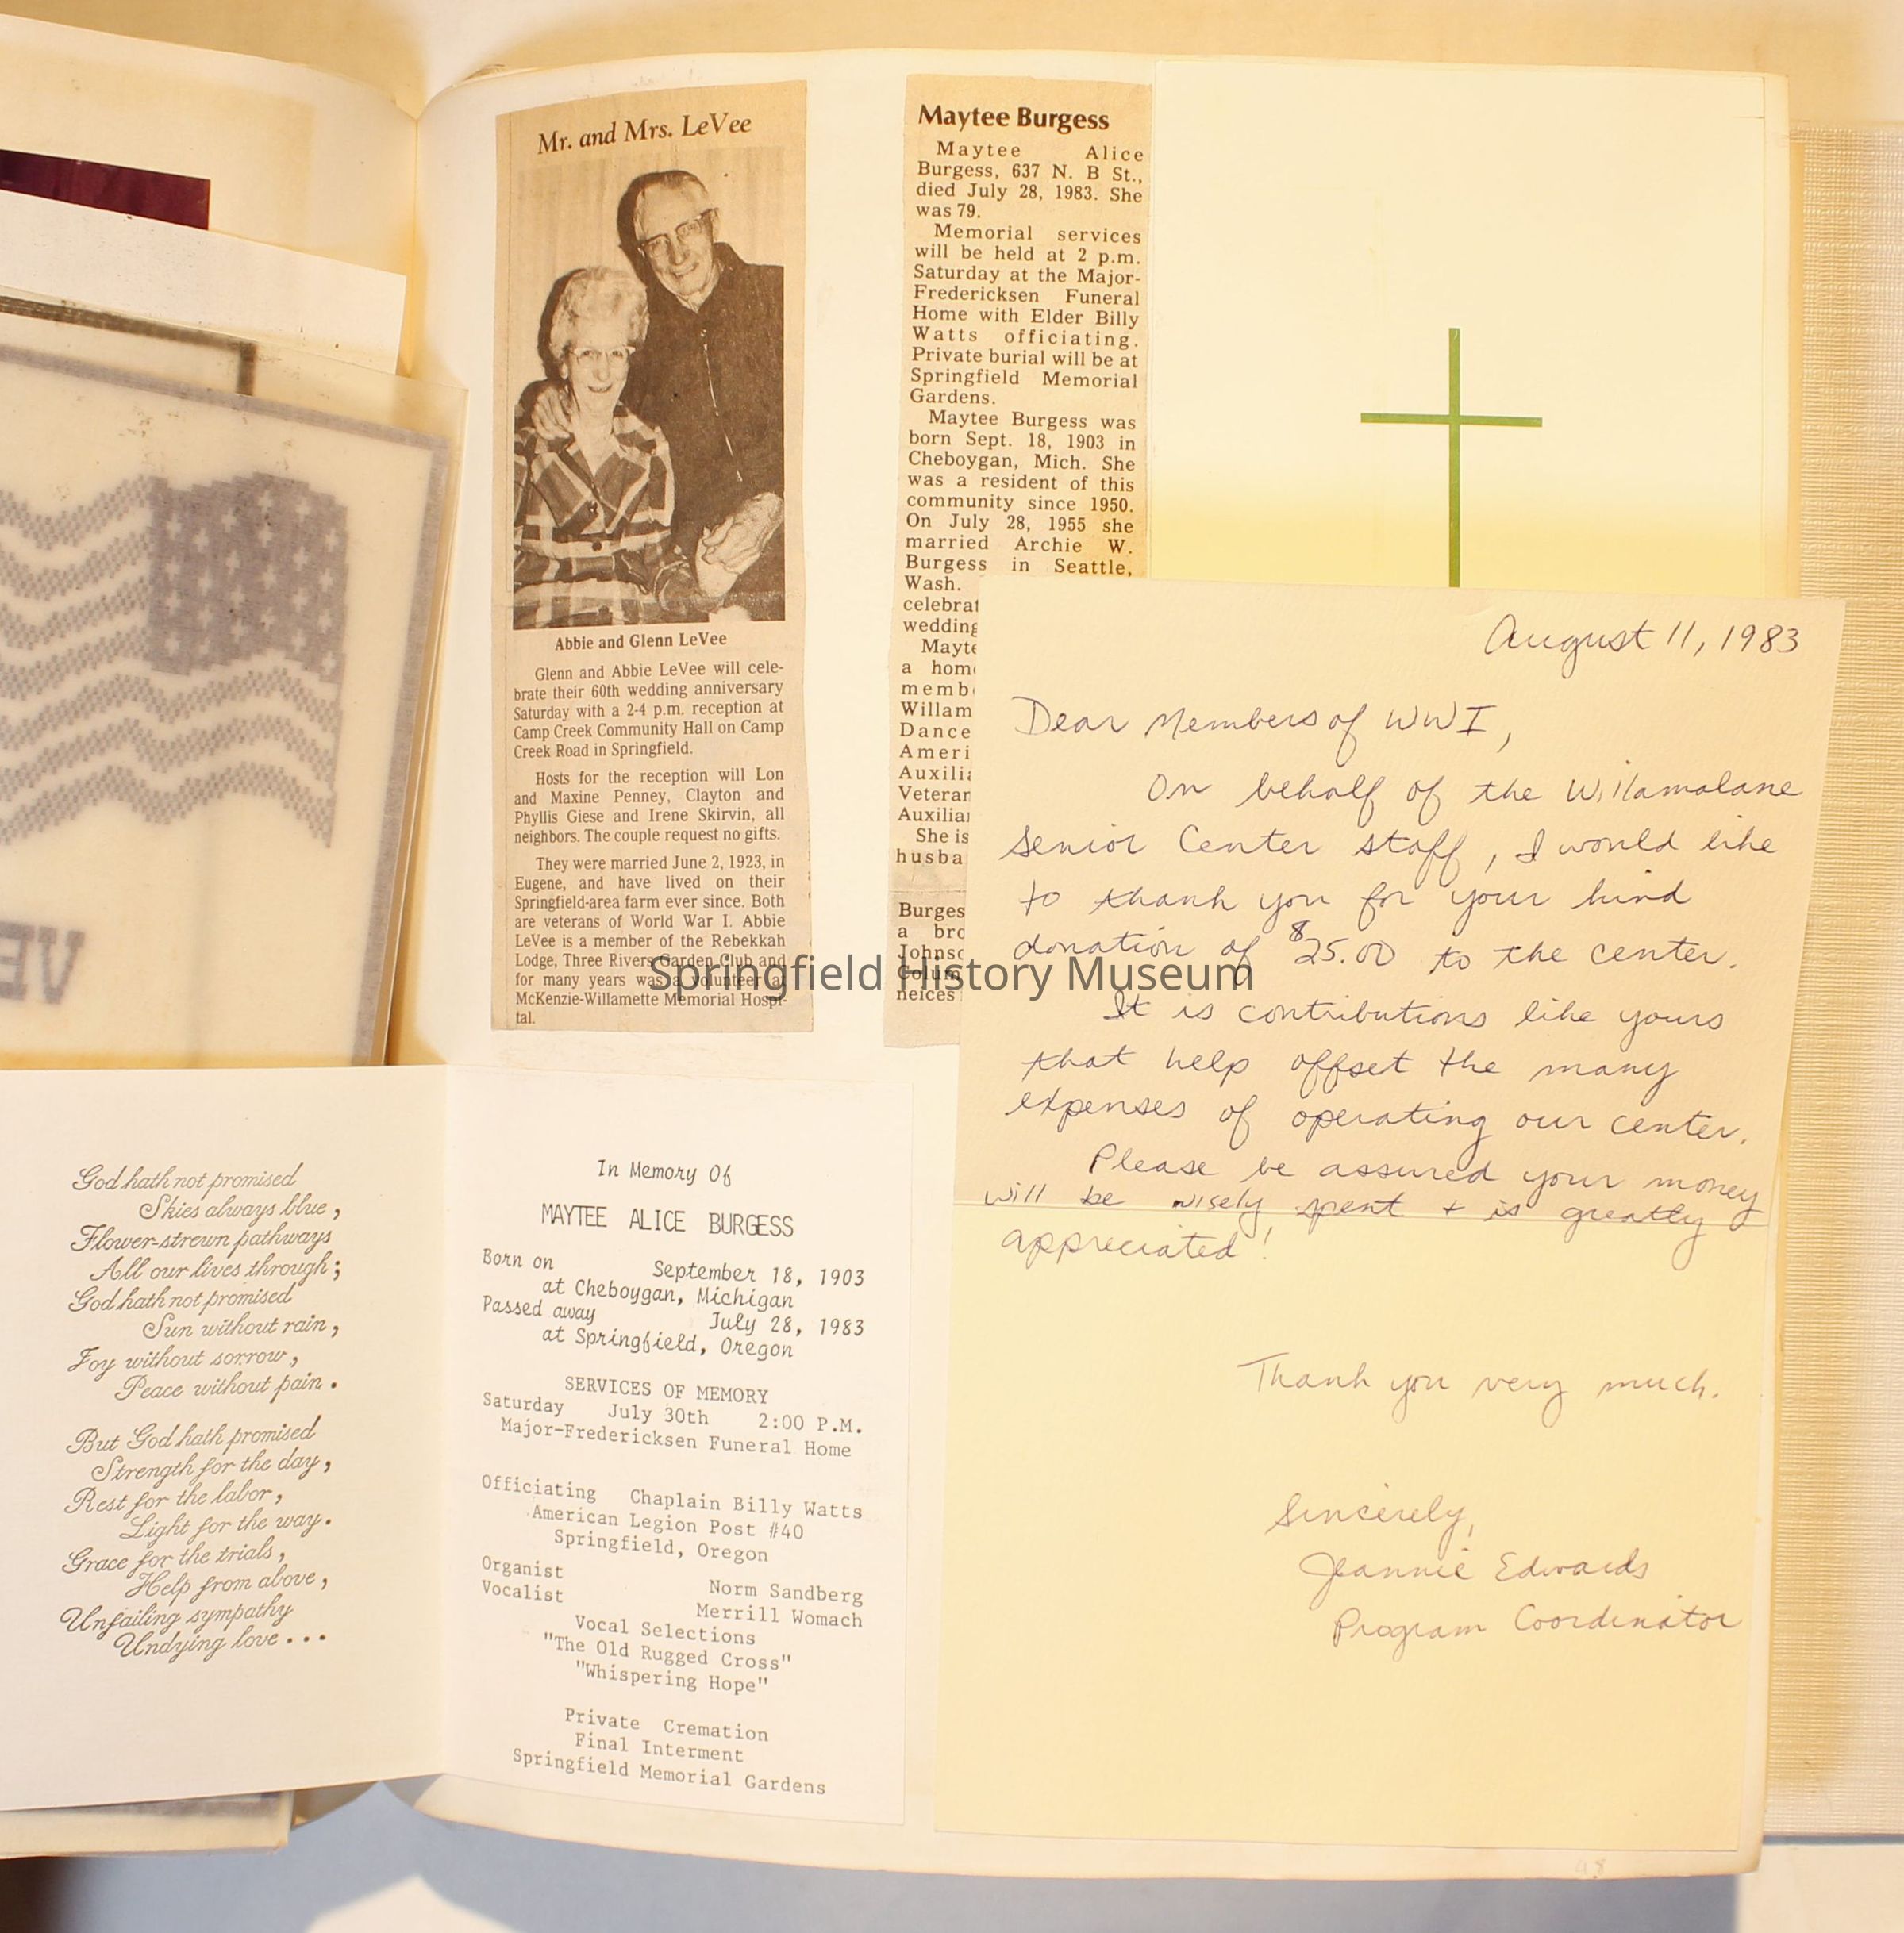 Mr. and Mrs. LeVee
Abbie and Glenn LeVee
Glenn and Abbie LeVee will cele-
brate their 60th wedding anniversary
Saturday with a 2-4 p.m. reception at
Camp Creek Community Hall on Camp
Creek Road in Springfield.
Hosts for the reception will Lon
and Maxine Penney, Clayton and
Phyllis Giese and Irene Skirvin, all
neighbors. The couple request no gifts.
They were married June 2, 1923, in
Eugene, and have lived on their
Springfield-area farm ever since. Both
are veterans of World War I. Abbie
LeVee is a member of the Rebekkah
Lodge, Three Rivers Garden Club and
for many years was a volunteer at
McKenzie-Willamette Memorial Hospi-
tal.
Maytee Burgess
Maytee Alice
Burgess, 637 N. B St.,
died July 28, 1983. She
was 79.
Memorial services
will be held at 2 p.m.
Saturday at the Major-
Fredericksen Funeral
Home with Elder Billy
Watts officiating.
Private burial will be at
Springfield Memorial
Gardens.
Maytee Burgess was
born Sept. 18, 1903 in
Cheboygan, Mich. She
was a resident of this
community since 1950.
On July 28, 1955 she
married Archie W.
Burgess in Seattle,
Wash.
celebrat
wedding
Mayte
a hom
memb
Willam
Dance
Ameri
Auxilia
Veteran
Auxilia
She is
husba
Burges
a bro
Johnso
Colum
neices
August 11, 1983
Dear Members of WWI,
On behalf of the Willamalane
Senior Center staff, I would like
to thank you for your kind
donation of $25.00 to the center.
It is contributions like yours
that help offset the many
expenses of operating our center.
Please be assured your money
will be wisely spent + is greatly
appreciated!
Thank you very much.
Sincerely,
Jeannie Edwards
Program Coordinator
God hath not promised
Skies always blue,
Flower-strewn pathways
All our lives through;
God hath not promised
Sun without rain,
Joy without sorrow,
Peace without pain.
But God hath promised
Strength for the day,
Rest for the labor,
Light for the way.
Grace for the trials,
Help from above,
Unfailing sympathy
Undying love...
In Memory Of
MAYTEE ALICE BURGESS
Born on September 18, 1903
at Cheboygan, Michigan
Passed away July 28, 1983
at Springfield, Oregon
SERVICES OF MEMORY
Saturday July 30th 2:00 P.M.
Major-Fredericksen Funeral Home
Officiating Chaplain Billy Watts
American Legion Post #40
Springfield, Oregon
Organist Norm Sandberg
Vocalist Merrill Womach
Vocal Selections
"The Old Rugged Cross"
"Whispering Hope"
Private Cremation
Final Interment
Springfield Memorial Gardens
Springfield History Museum
48